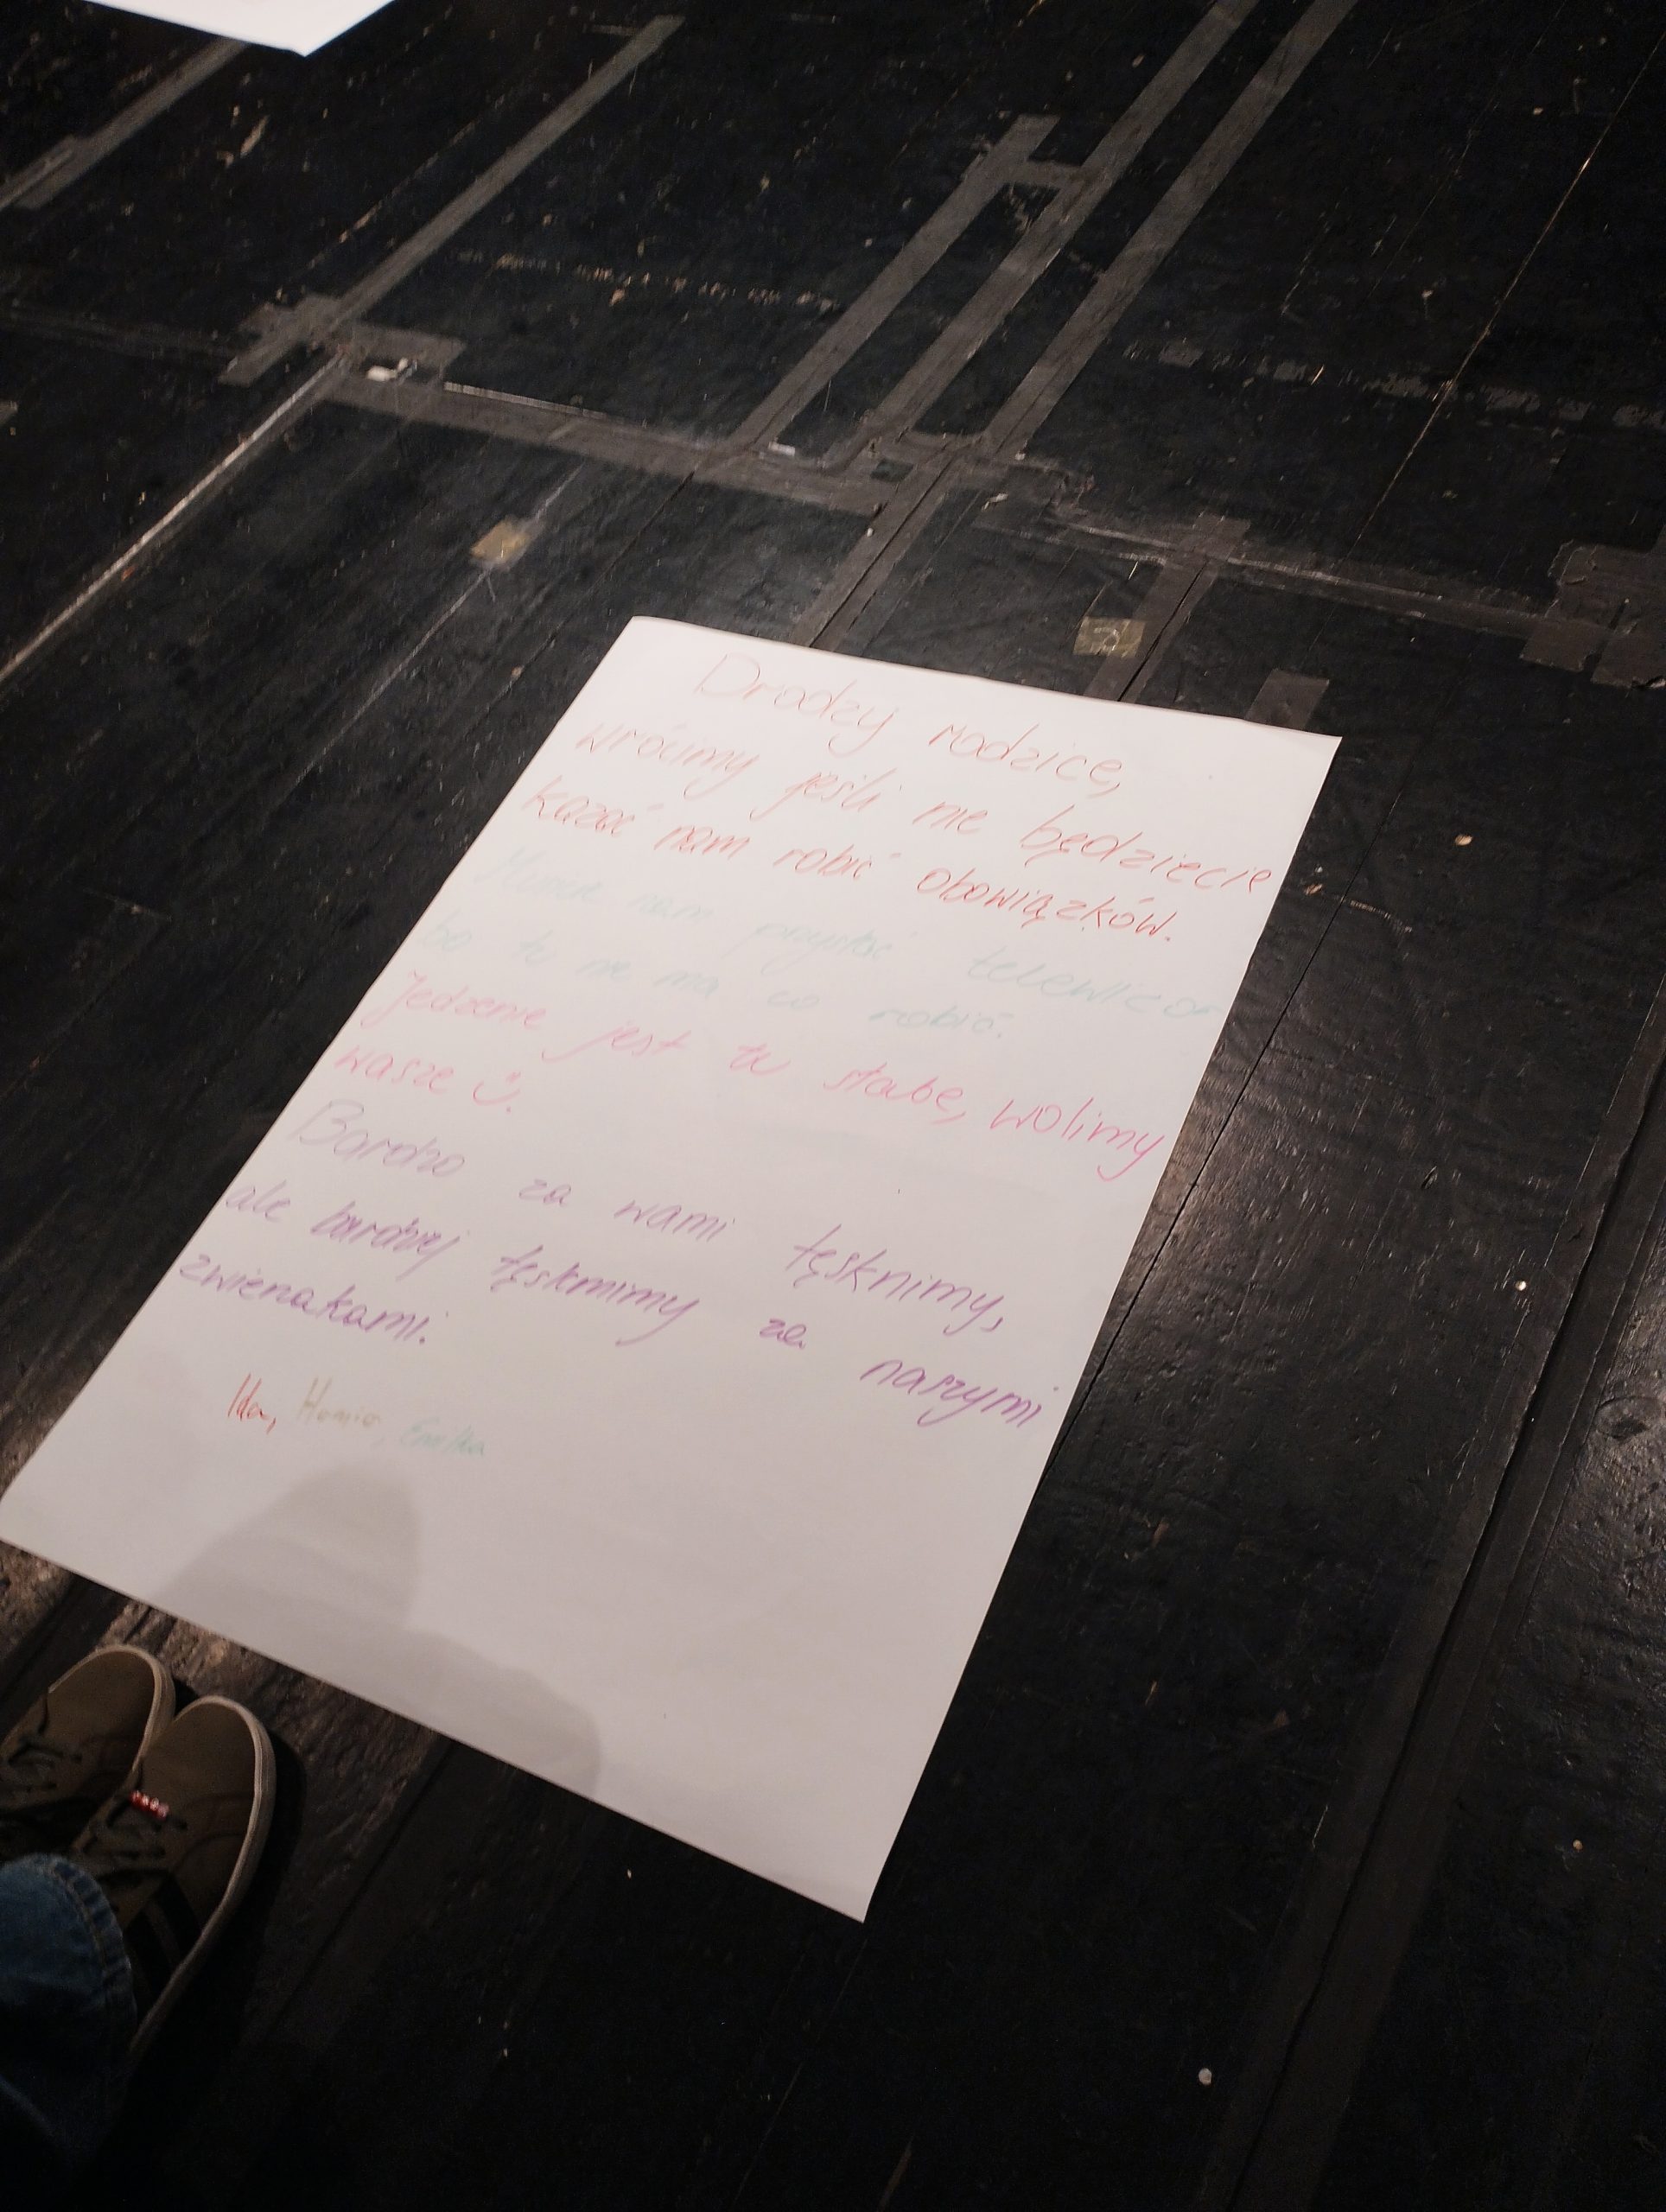 Drodzy rodzice,
wrócimy jeśli nie będziecie
kazać nam robić obowiązków.
nam przysłać telewizor
bo tu nie ma co robić.
Jedzenie jest tu słabe, wolimy
wasze
Bardzo za wami tęsknimy,
ale bardziej tęsknimy za naszymi
zwierzakami.
Ida, Hania, Emilka